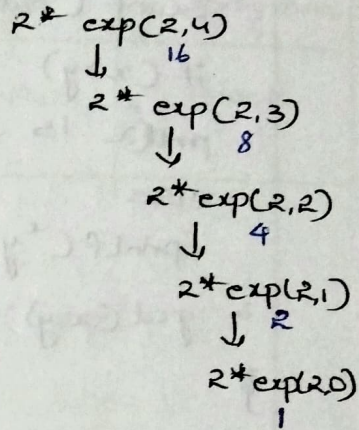 2* exp(2,4)
16
2* exp(2,3)
8
2* exp(2,2)
4
2* exp(2,1)
2
2* exp(2,0)
1